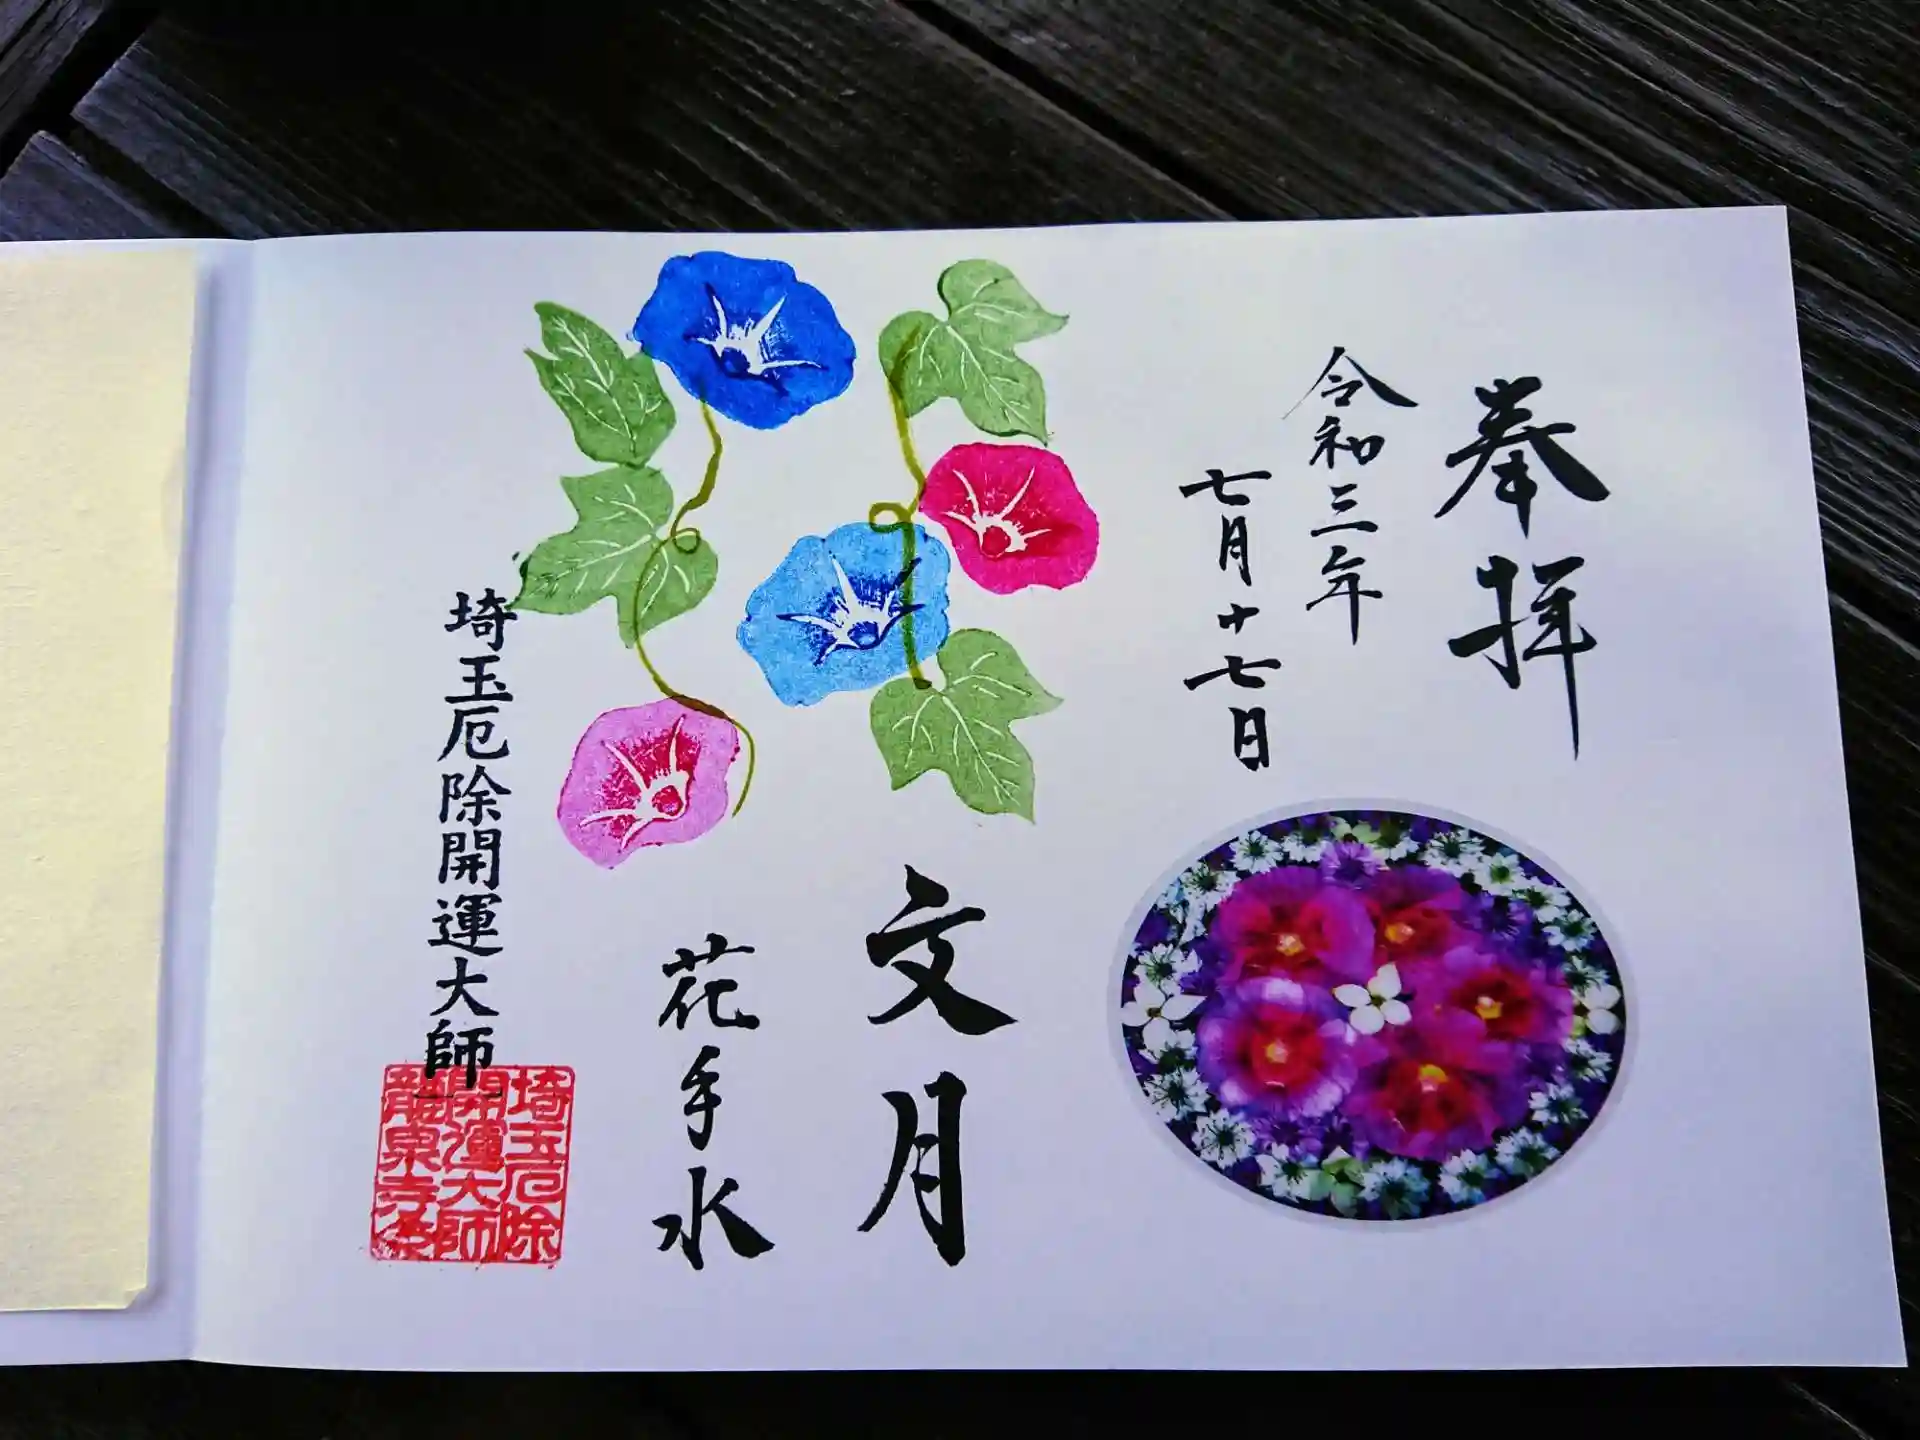 奉拝
令和三年
七月十七日
文月
花手水
埼玉厄除開運大師
埼玉厄除
開運大師
龍泉寺印